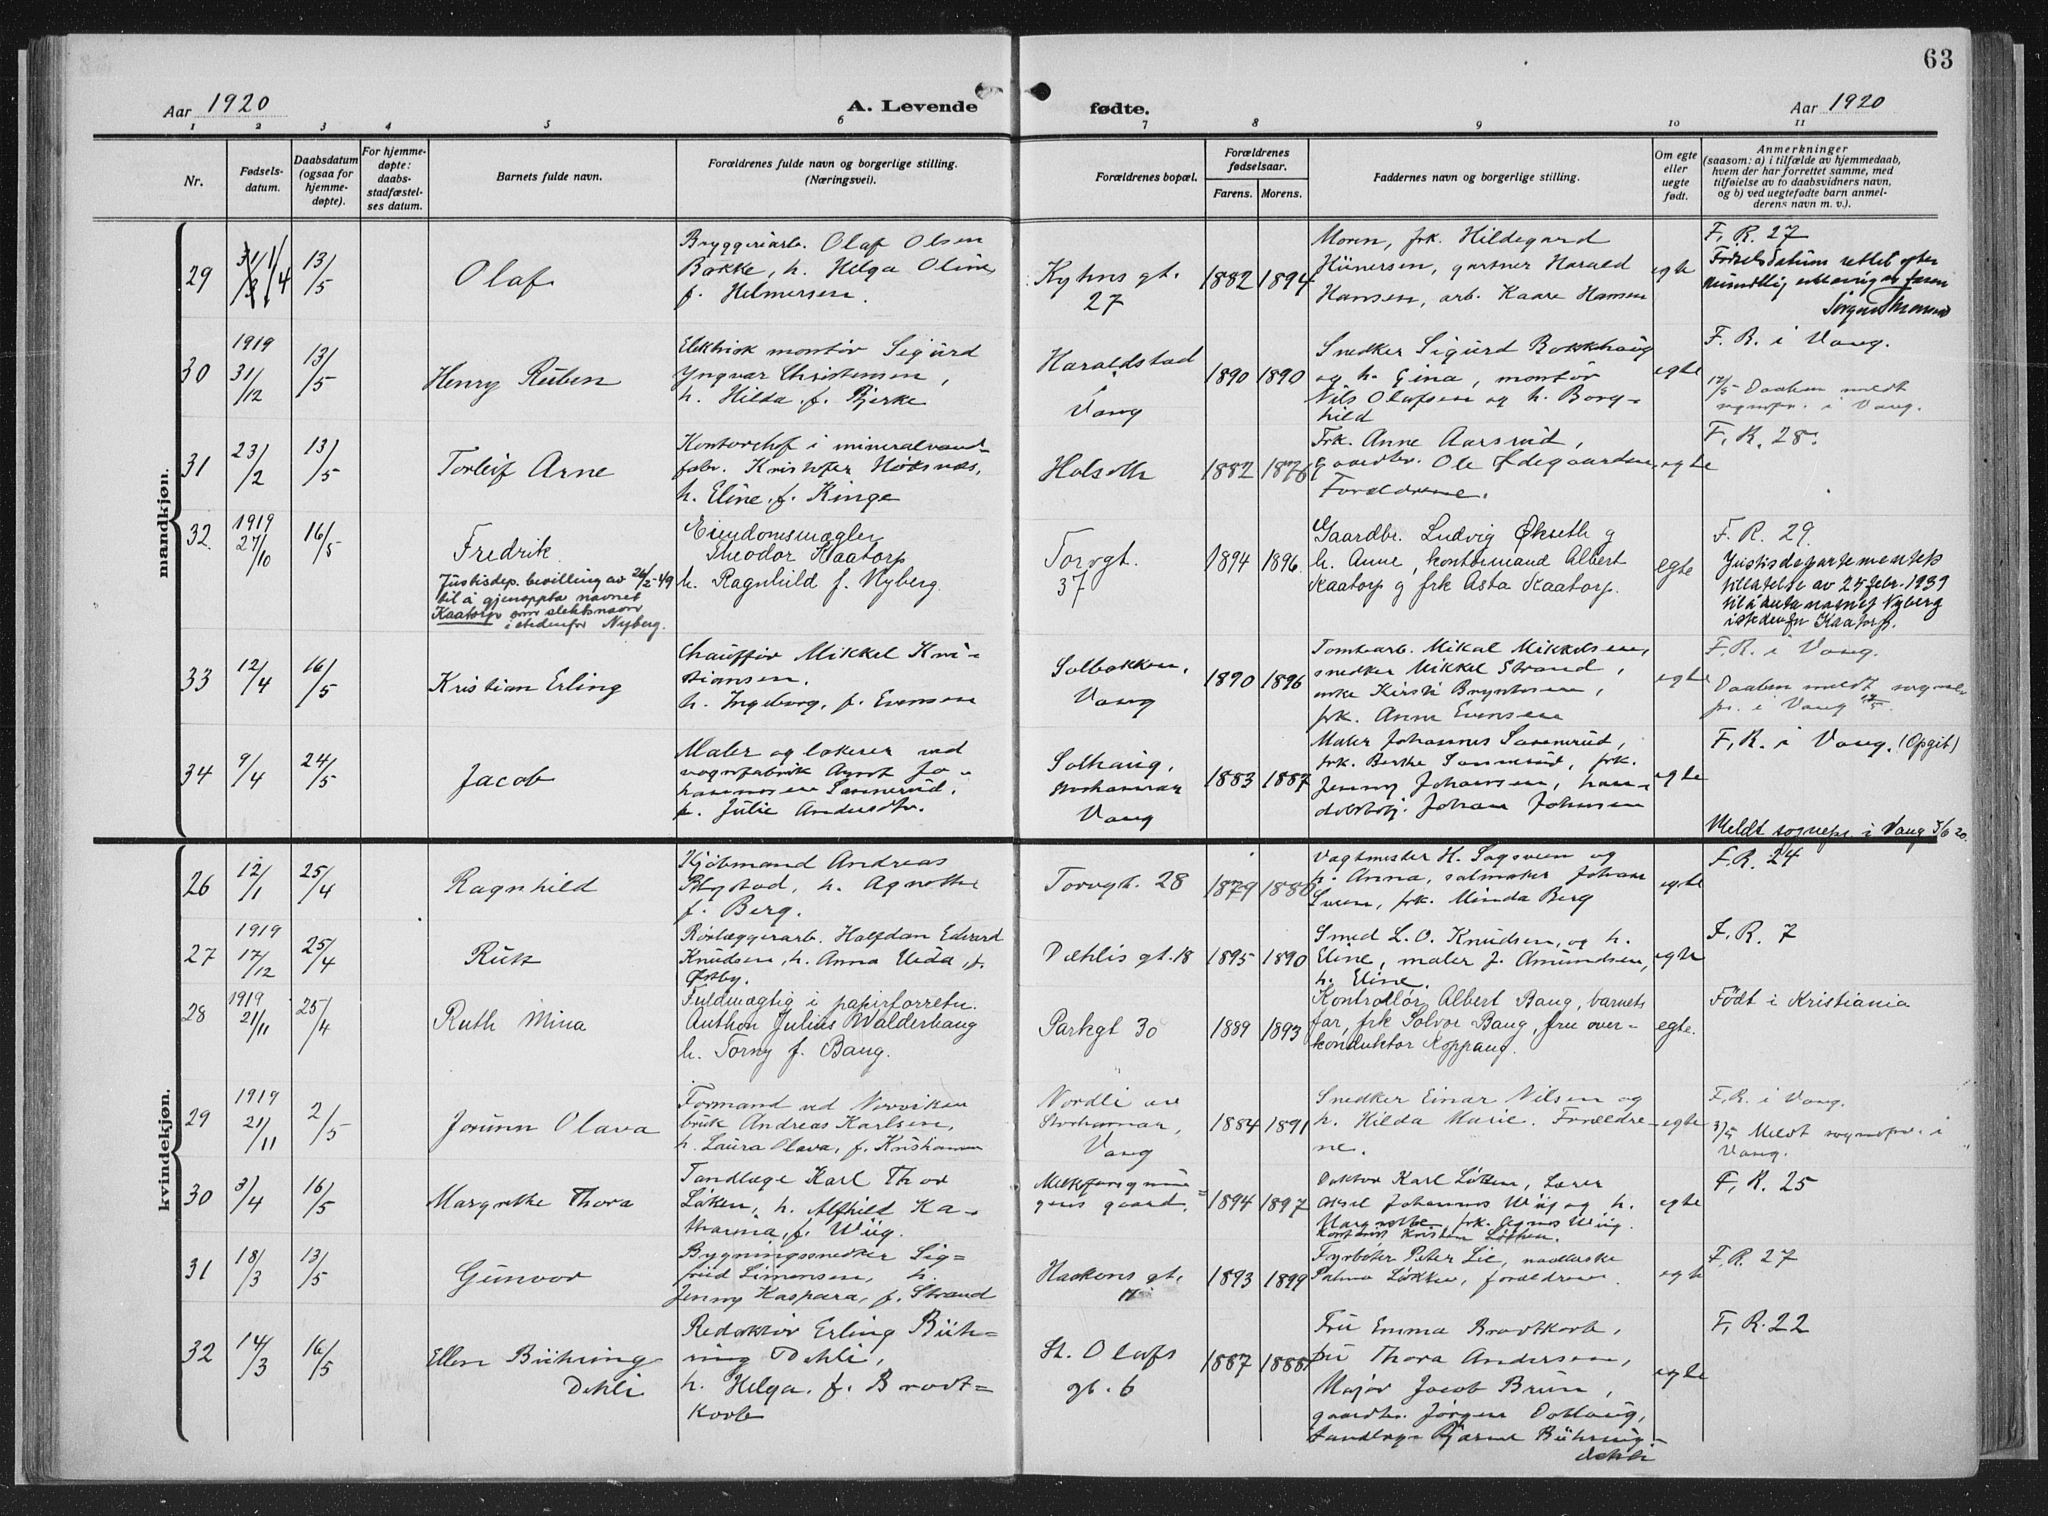 63
Aar 1920
A. Levende
fødte.
Aar 1920
1 2 3 4 5 6 7 8 9 10 11
Nr.
Fødsels-
datum.
Daabsdatum
(ogsaa for
hjemme-
døpte).
For hjemme-
døpte:
daabs-
stadfæstel-
ses datum.
Barnets fulde navn.
Forældrenes fulde navn og borgerlige stilling.
(Næringsvei).
Forældrenes bopæl.
Forældrenes
fødselsaar.
Farens. Morens.
Faddernes navn og borgerlige stilling.
Om egte
eller
uegte
født.
Anmerkninger
(saasom: a) i tilfælde av hjemmedaab,
hvem der har forrettet samme, med
tilføielse av to daabsvidners navn,
og b) ved uegtefødte barn anmel-
derens navn m. v.).
mandkjøn.
29
31/3 1/4
13/5
Olaf
Bryggeriarb. Olaf Olsen
Bakke, h. Helga Oline
f. Helmersen.
Kyhns gt.
27
1882 1894
Moren, frk. Hildegard
Hünersen, gartner Harald
Hansen, arb. Kaare Hansen
egte
F. R. 27
Fødselsdatum rettet efter
mundtlig
30
1919
31/12
13/5
Henry Ruben
Elektrisk montør Sigurd
Yngvar Christensen,
h. Hilda f. Bjerke
Haraldstad
i
Vang
1890 1890
Snedker Sigurd Bakkhaug
og h. Gina, montør
Nils Olafsen og h. Borg-
hild
egte
F. R. i Vang.
12/5 Daaben meldt
sognepr. i Vang.
31
23/2
13/5
Torleif Arne
Kontorchef i mineralvand-
fabr. Kristofer Høksnæs,
h. Eline f. Kinge
Holseth
1882 1876
Frk. Anne Aarsrud,
gaardbr. Ole Ødegaarden
Forældrene.
egte
F. R. 28.
32
1919
27/10
16/5
Fredrik
Justisdep. bevilling av 26/2-49
til å gjenoppta navnet
Kaatorp som slektsnavn
istedenfor Nyberg.
Eiendomsmægler
Theodor Kaatorp
h. Ragnhild f. Nyberg.
Torvgt.
37
1894 1896
Gaardbr. Ludvig Økseth g
h. Anne, kontormand Albert
Kaatorp g frk Asta Kaatorp.
egte
F. R. 29.
Justisdepartementets
tillatelse av 25 febr. 1939
til å anta navnet Nyberg
istedenfor Kaatorp.
33
12/4
16/5
Kristian Erling
Chauffør Mikkel Kri-
stiansen.
h. Ingeborg, f. Evensen
Solbakken,
Vang
1890 1896
Tomtearb. Mikal Mikkelsen,
snedker Mikkel Strand,
enke Kirsti Bryntesen,
frk. Anne Evensen
egte
F. R. i Vang.
Daaben meldt sogne-
pr. i Vang
34
9/4
24/5
Jacob
Maler og lakerer ved
vognfabrik Arnt Jo-
hannesen Sannerud,
h. Julie Andersdtr.
Solhaug,
Storhamar
Vang
1883 1887
Maler Johannes Sannerud,
frk. Berthe Sannerud, frk.
Jenny Johansen, han-
delsbetj. Johan Johnsen
egte
F. R. i Vang. (Opgit)
Meldt sognepr i Vang 5/6 20.
kvindekjøn.
26
12/1
25/4
Ragnhild
Kjøbmand Andreas
Blystad, h. Agnethe
f. Berg.
Torvgt. 28
1879 1880
Vagtmester H. Sagsveen og
h. Anna, salmaker Johan
Sveen, frk. Minda Berg
egte
F. R. 24
27
1919
17/12
25/4
Ruth
Rørlæggerarb. Halfdan Edvard
Knudsen, h. Anna Uida, f.
Østby.
Dæhlis gt. 18
1895 1890
Smed L. O. Knudsen, og h.
Eline, maler J. Amundsen,
h. Eline.
egte
F. R. 7
28
1919
21/11
25/4
Ruth Mina
Fuldmægtig i papirforretn.
Anthon Julius Walderhaug
h. Torny f. Baug.
Parkgt 30
1889 1893
Kontrollør Albert Baug, barnets
far, frk Solvor Baug, frue over-
konduktør Koppang.
egte.
Født i Kristiania
29
1919
21/11
2/5
Jorunn Olava
Formand ved Norviken
bruk Andreas Karlsen,
h. Laura Olava, f. Kristiansen
Nordli
Storhamar,
Vang
1884 1891
Snedker Einar Nilsen og
h. Hilda Marie. Forældre-
ne.
egte
F. R. i Vang.
3/5 Meldt sognepr. i
Vang.
30
3/4
16/5
Margrethe Thora
Tandlæge Karl Thor
Løken, h. Alfhild Ka-
tharina, f. Wiig.
gaard.
1894 1897
Doktor Karl Løken, Lærer
Aksel Johannes Wiig og h.
Margrethe, frk. Agnes Wiig.
egte
F. R. 25
31
18/3
13/5
Gunvor
Bygningssnedker Sig-
frid Simensen, h.
Jenny Kaspara, f. Strand
Haakons gt.
1893 1899
Fyrbøter Peter Lie,
Palma Løkken, forældrene.
egte
F. R. 27
32
14/3
16/5
Ellen Bühring
Dehli
Redaktør Erling Büh-
ring Dehli,
h. Helga f. Brodt-
korb
St. Olafs
gt. 6
1887 1888
Fru Emma Brodtkorb,
fru Thora Andersen,
Major Jacob Bruun,
gaardbr. Jørgen
tandlæge Bjarne Bühring-
Dehli
egte
F. R. 22